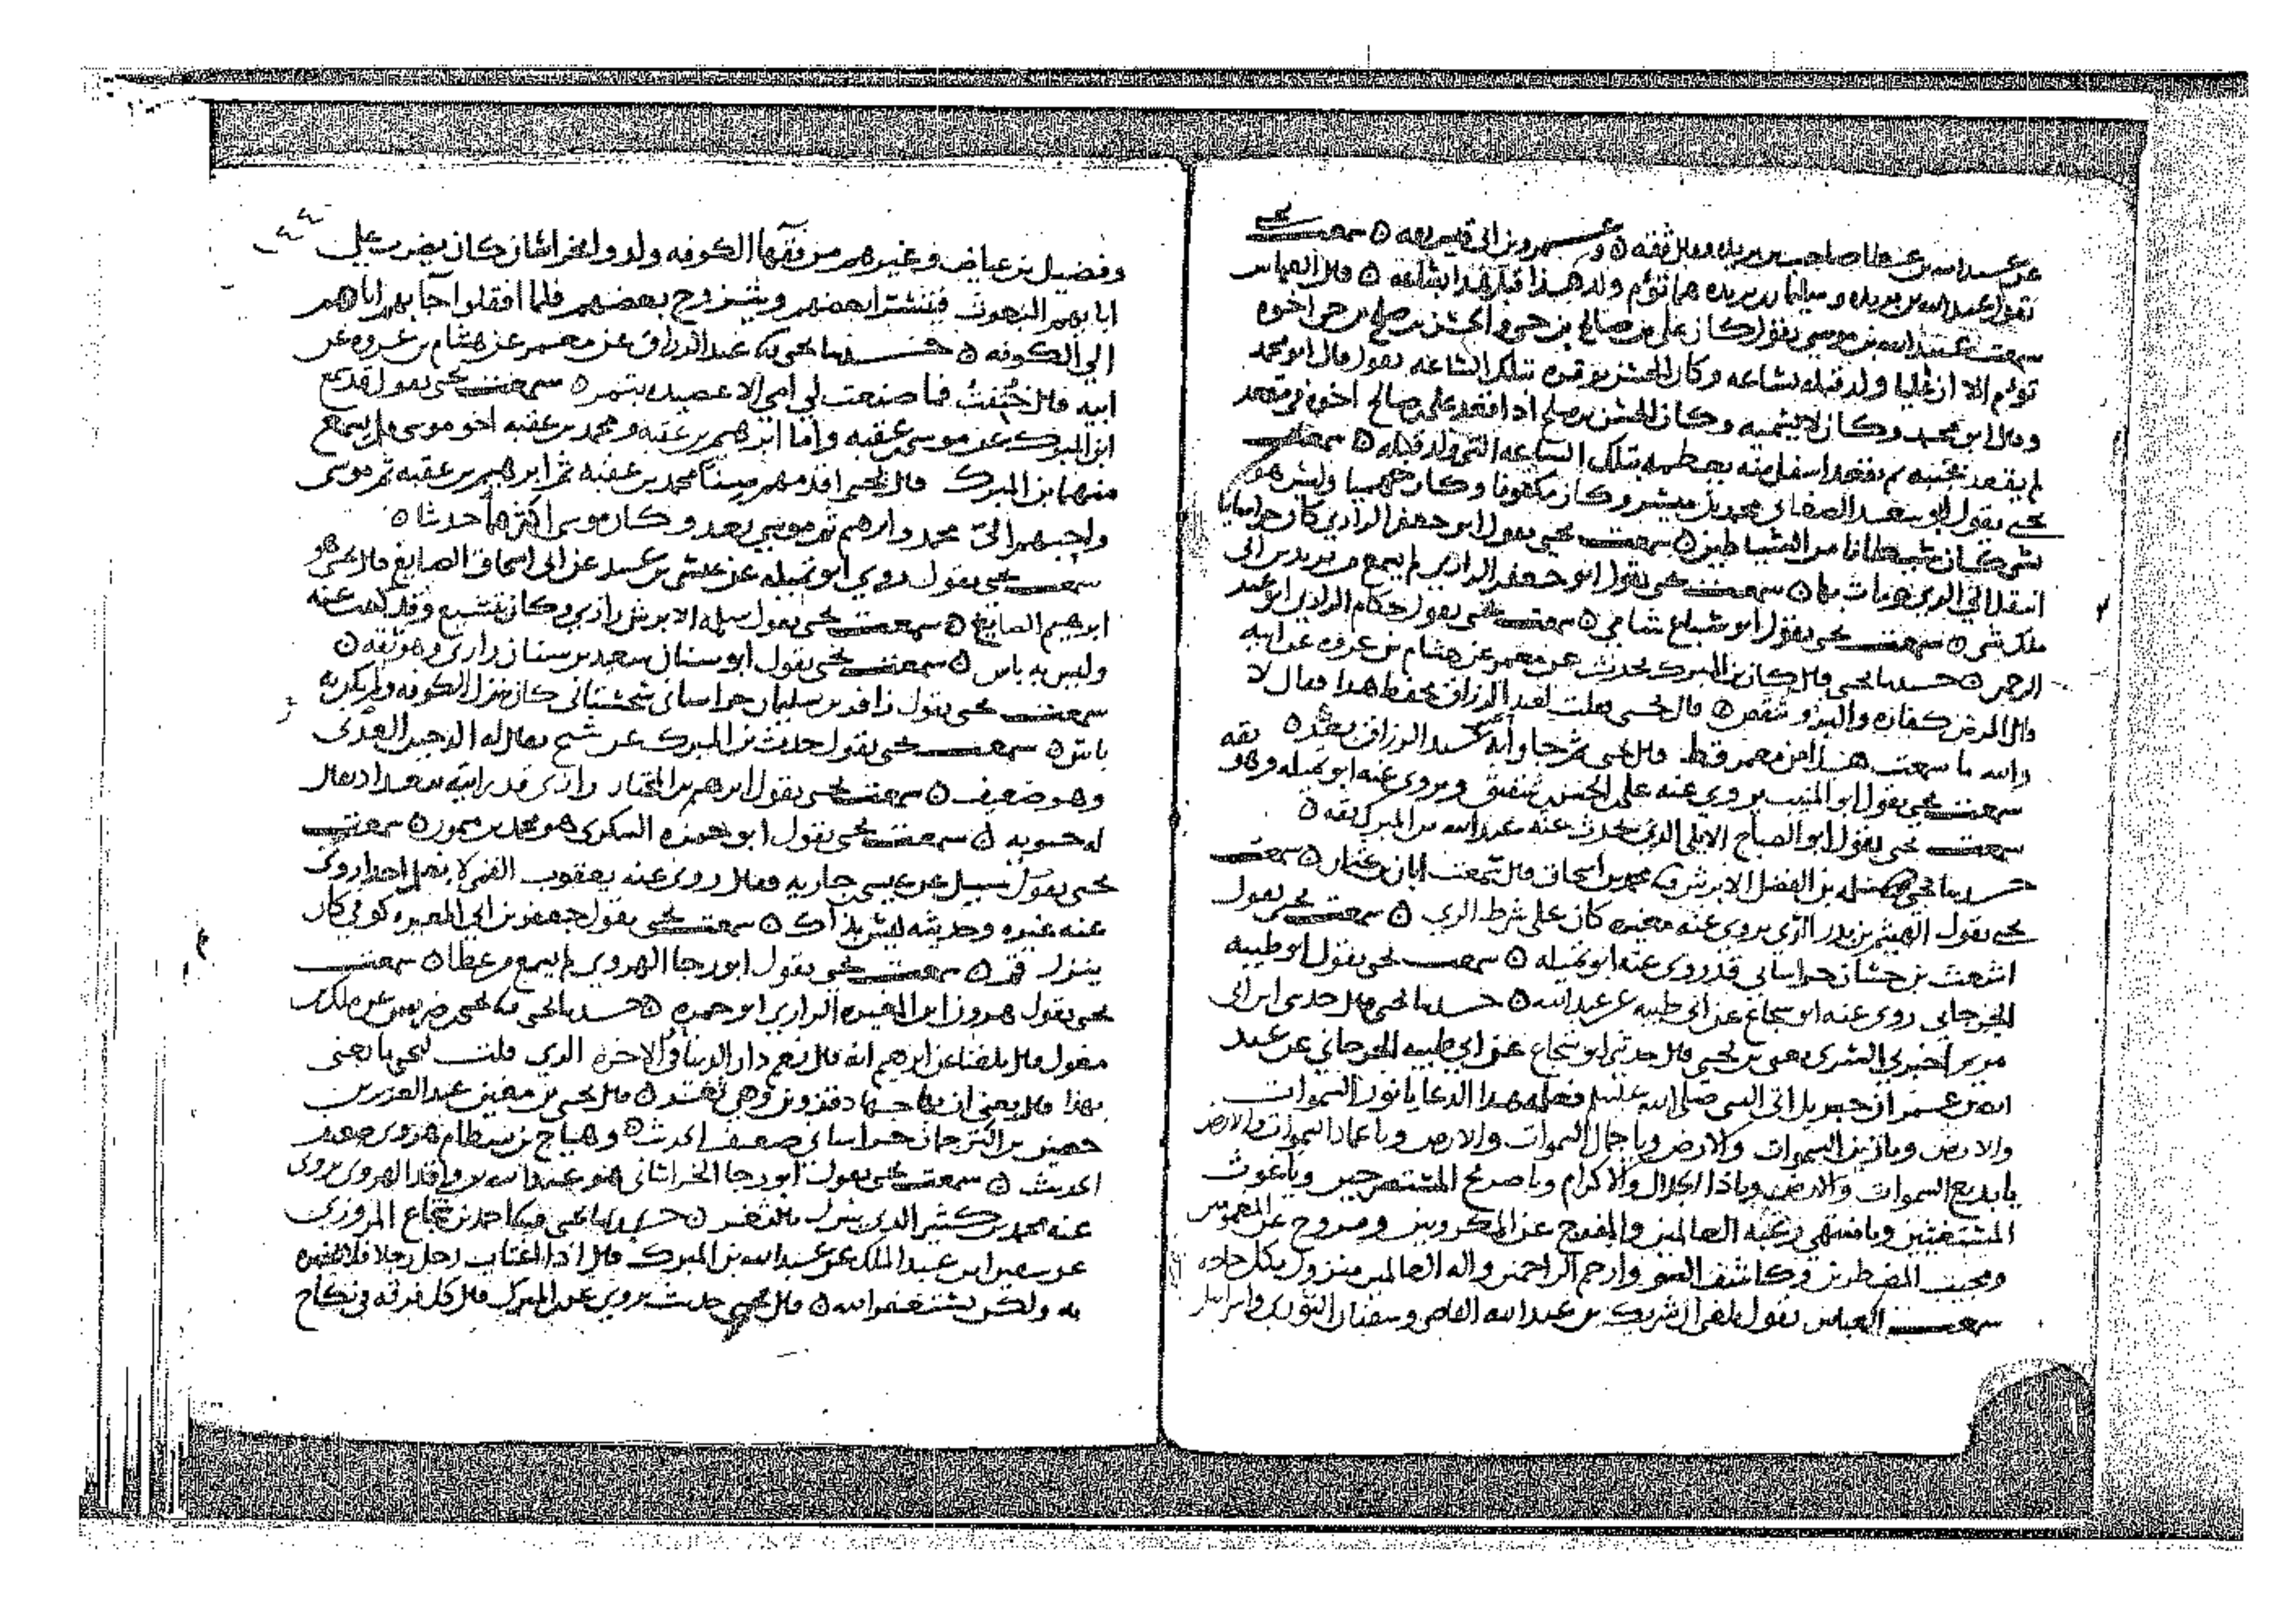 عن عبد الله بن عطا صاحب بن بريده فقال ثقه ۞ وعمرو بن ابى قيس ثقه ۞ سمعت يحيى
يقول عبد الله بن بريده وسليمان بن بريده هما توأم ولد هذا قبل هذا بساعه ۞ قال العباس
سمعت عبيد الله بن موسى يقول كان علي بن صالح بن حي والحسن بن صالح بن حي اخوه
توأم الا ان عليا ولد قبله بساعه وكان الحسن يوقره بتلك الساعه يقول قال ابو محمد
وقال ابو محمد وكان لا يسميه وكان الحسن بن صالح اذا قعد علي بن صالح اخوه في مقعد
لم يقعد بجنبه يقعد اسفل منه يعظمه بتلك الساعه التي ولد قبله ۞ سمعت
يحيى يقول ابو سعد الصغاني محمد بن ميسر وكان مكفوفا وكان جهميا وليس هو
بشي كان شيطانا من الشياطين ۞ سمعت يحيى يقول ابو جعفر الرازي كان خراسانيا
انتقل الى الري ومات بها ۞ سمعت يحيى يقول ابو جعفر الرازي لم يسمع من يزيد بن ابي
ملك شي ۞ سمعت يحيى يقول ابو شامي ۞ سمعت يحيى يقول حكام الرازي ابو عبد
الرحمن ۞ حدثنا يحيى قال كان بن المبرك يحدث عن معمر عن هشام بن عروه عن ابيه
قال المرض كفاره والبرو ۞ قال يحيى فقلت لعبد الرزاق تحفظ هذا فقال لا
والله ما سمعت هذا من معمر قط قال يحيى ثم جا وابه عبد الرزاق بعد ۞
سمعت يحيى يقول ابو المنيب يروي عنه علي بن الحسن بن شقيق ويروى عنه ابو تميله وهو ثقه
سمعت يحيى يقول ابو الصباح الايلي الذي يحدث عنه عبد الله بن المبرك ثقه ۞
حدثنا يحيى سلمه بن الفضل الابرش محمد بن اسحاق قال سمعت ابان بن عثمان ۞ سمعت
يحيى يقول الهيثم بن بدر الذي يروي عنه مغيره كان على شرط الري ۞ سمعت يحيى يقول
اشعث بن خراساني قد روى عنه ابو تميله ۞ سمعت يحيى يقول ابو طيبه
الجرجاني روى عنه ابو شجاع عن ابي طيبه عن عبد الله ۞ حدثنا يحيى قال حدثنى ابن ابي
مريم اخبرني السري بن يحيى قال حدثني ابو شجاع عن ابي طيبه الجرجاني عن عبد
الله بن عمر ان جبريل اتى النبي صلى الله عليه فعلمه هذا الدعا يا نور السموات
والارض ويا زين السموات والارض ويا جمال السموات والارض ويا عماد السموات والارض
يا بديع السموات والارض ويا ذا الجلال والاكرام ويا صريخ المستصرخين ويا غوث
المستغيثين ويا منتهى رغبه العالمين والمفرج عن المكروبين ومروح عن المغمومين
ومجيب المضطرين وكاشف السو وارحم الراحمين واله العالمين منزول بكل حاجه
سمعت العباس يقول بلغني ان شريك بن عبد الله القاضي وسفيان الثوري واسرائيل
وفضيل بن عياض وغيرهم من فقها الكوفه ولدوا بخراسان كان يضرب على
ابايهم البعوث فيتسرا بعضهم ويتزوج بعضهم فلما اقفلوا جا بهم اباهم
الى الكوفه ۞ حدثنا يحيى عبد الرزاق عن معمر عن هشام بن عروه عن
ابيه قال ختنت فما صنعت لي امي الا عصيده بتمر ۞ سمعت يحيى يقول قد سمع
ابن المبرك من موسى بن عقبه واما ابرهيم بن عقبه ومحمد بن عقبه اخو موسى فلم يسمع
منهما بن المبرك قال يحيى اقدمهم سنا محمد بن عقبه ثم ابرهيم بن عقبه ثم موسى
واحبهم الي محمد وابرهيم ثم موسى بعد وكان موسى اكثرهما حدثا ۞
سمعت يحيى يقول روى ابو تميله عن عيسى بن عبيد عن ابي اسحاق الصايغ قال يحيى هو
ابرهيم الصايغ ۞ سمعت يحيى يقول سلمه الابرش رازي وكان يتشيع وقد كتبت عنه
وليس به باس ۞ سمعت يحيى يقول ابو سنان سعيد بن سنان رازي وهو ثقه ۞
سمعت يحيى يقول زافر بن سليمان خراساني سجستاني كان ينزل الكوفه ولم يكن به
باس ۞ سمعت يحيى يقول حدث بن المبرك عن شيخ يقال له
وهو ضعيف ۞ سمعت يحيى يقول ابرهيم بن المختار رازي قد رايته ببغداد يقال
له حبويه ۞ سمعت يحيى يقول ابو حمزه السكري هو محمد بن ميمون ۞ سمعت
يحيى يقول سيل عن عيسى بن جاريه فقال روى عنه يعقوب القمي لا نعلم احدا روى
عنه غيره وحديثه ليس بذاك ۞ سمعت يحيى يقول جعفر بن ابي المغيره كوفي كان
ينزل قم ۞ سمعت يحيى يقول ابو رجا الهروي لم يسمع من عطا ۞ سمعت
يحيى يقول هرون ابن المغيره الرازي ابو حمزه ۞ حدثنا يحيى محمد بن عن ملك بن
مغول قال بلغنا عن ابرهيم انه قال نعم دار الدنيا والاخره الري قلت ليحيى ما يعني
بهذا قال يعني ان بها جهاد قزوين وهي ۞ قال يحيى بن معين عبد العزيز بن
حصين بن الترجمان خراساني ضعيف الحديث ۞ وهياج بن بسطام هروي ضعيف
الحديث ۞ سمعت يحيى يقول ابو رجا الخراساني هو عبد الله بن واقد الهروي يروي
عنه محمد بن كثير الذي ينزل بالثغر ۞ حدثنا يحيى احمد بن شجاع المروزي
عن سفين ابن عبد الملك عن عبد الله بن المبرك قال اذا اغتاب رجل رجلا فلا يخبره
به ولكن يستغفر الله ۞ قال يحيى حديث يروى عن بن المبرك قال كل فرقه في نكاح